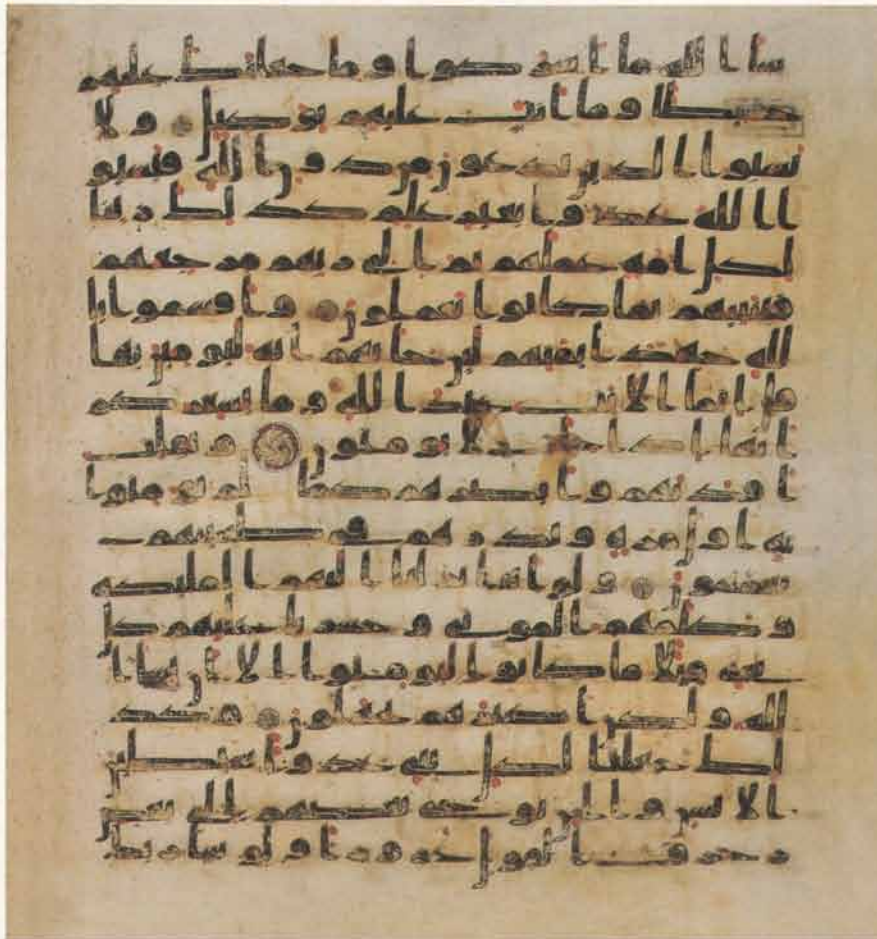 شا الله ما اشركوا وما جعلنك عليهم
حفيظا وما انت عليهم بوكيل ولا
تسبوا الذين يدعون من دون الله فيسبو
ا الله عدوا بغير علم كذلك زينا
لكل امة عملهم ثم الى ربهم مرجعهم
فينبيهم بما كانوا يعملون واقسموا با
لله جهد ايمنهم لين جاتهم اية ليومنن بها
قل انما الايت عند الله وما يشعركم
انها اذا جات لا يومنون ونقلب
افدتهم وابصرهم كما لم يومنوا
به اول مرة ونذرهم في طغينهم
يعمهون ولو اننا نزلنا اليهم المليكة
وكلمهم الموتى وحشرنا عليهم كل
شي قبلا ما كانوا ليومنوا الا ان يشا ا
لله ولكن اكثرهم يجهلون وكذ
لك جعلنا لكل نبي عدوا شيطين
الانس والجن يوحي بعضهم الى بعض
زخرف القول غرورا ولو شا ربك